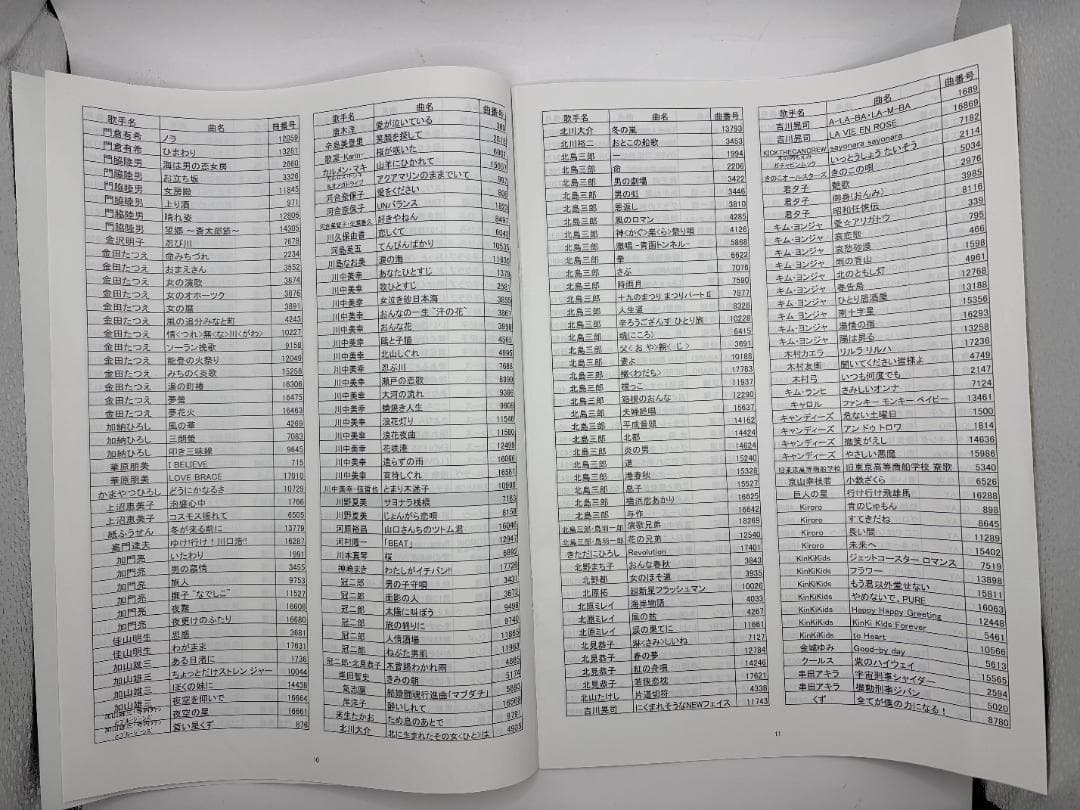 歌手名 曲名 曲番号
門倉有希 ノラ 12059
門倉有希 ひまわり 13281
門脇陸男 海は男の恋女房 2660
門脇陸男 お立ち坂 3326
門脇陸男 女房殿 11845
門脇陸男 上り酒 971
門脇陸男 晴れ姿 12806
門脇陸男 望郷 14305
金沢明子 忍び川 7678
金田たつえ 命みちづれ 2234
金田たつえ おまえさん 3552
金田たつえ 女の演歌 3874
金田たつえ 女のオホーツク 3876
金田たつえ 女の暦 3891
金田たつえ 風の追分みなと町 4243
金田たつえ 10227
金田たつえ ソーラン挽歌 9158
金田たつえ 能登の火祭り 12049
金田たつえ みちのく炎歌 15258
金田たつえ 湯の町椿 16306
金田たつえ 夢蛍 16475
金田たつえ 夢花火 16463
加納ひろし 風の華 4269
加納ひろし 三朗蛍 7083
加納ひろし 叩き三味線 9645
華原朋美 I BELIEVE 715
華原朋美 LOVE BRACE 17010
かまやつひろし どうにかなるさ 10729
上沼恵美子 泡盛心中 1766
上沼恵美子 コスモス揺れて 6505
紙ふうせん 冬が来る前に 13779
亀門達夫 ゆけ!行け!川口浩!! 16287
加門亮 いたわり 1991
加門亮 男の慕情 3455
加門亮 旅人 9753
加門亮 撫子"なでしこ" 11527
加門亮 夜霧 16608
加門亮 夜更けのふたり 16680
佳山明生 恋惑 3681
佳山明生 わがまま 17631
加山雄三 ある日渚に 1736
加山雄三 ちょっとだけストレンジャー 10044
加山雄三 ぼくの妹に 14438
加山雄三 夜空を仰いで 16664
夜空の星 16661
蒼い星くず 876
歌手名 曲名 曲番号
唐木淳 愛が泣いている
辛島美登里 笑顔を探して
歌菜-Karin- 桜が咲いた
カルメン・マキ 山羊にひかれて
アクアマリンのままでいて
河合奈保子 愛をください
河合奈保子 UNバランス
好きやねん
川久保由香 恋しくて 6043
河島英五 てんびんばかり 10535
川島なお美 涙の海
川中美幸 あなたひとすじ 1379
川中美幸 歌ひとすじ 2581
川中美幸 女泣き砂日本海 3855
川中美幸 おんなの一生 "汗の花" 3867
川中美幸 おんな花 3918
川中美幸 4565
川中美幸 北山しぐれ 4995
川中美幸 忍ぶ川 7688
川中美幸 瀬戸の恋歌 8399
川中美幸 大河の流れ 9386
川中美幸 情焼き人生 9606
川中美幸 浪花灯り 11540
川中美幸 浪花夜曲 11580
川中美幸 花咲港 12498
川中美幸 遣らずの雨 16086
川中美幸 宵待しぐれ 16581
川中美幸・弦哲也 とまり木迷子 10991
川野夏美 サヨナラ桟橋 7183
川野夏美 じょんがら恋唄 8158
河原裕昌 山口さんちのツトム君 16046
河村隆一 「BEAT」 12947
川本真琴 桜 6892
神崎まき わたしがイチバン!! 17728
冠二郎 男の子守唄 3431
冠二郎 面影の人 3672
冠二郎 太陽に叫ぼう 9498
冠二郎 旅の終りに 9740
冠二郎 人情酒場 11883
冠二郎 ねぶた男節 11963
冠二郎・北見恭子 木曽路わかれ雨 4885
岸田智史 きみの朝 5174
気志團 結婚闘魂行進曲「マブダチ」 5893
岸洋子 酔いしれて 16568
木生たかお ため息のあとで 9781
北川大介 北に生まれたその女<ひと>は 4985
歌手名 曲名 曲番号
北川大介 冬の嵐 13793
北川裕二 おとこの和歌 3453
北島三郎 一 1994
北島三郎 命 2206
北島三郎 男の劇場 3422
北島三郎 男の虹 3446
北島三郎 恩返し 3810
北島三郎 風のロマン 4285
北島三郎 神<かぐ>楽<ら>祭り唄 4126
北島三郎 激唱~青函トンネル~ 5868
北島三郎 拳 6622
北島三郎 さぶ 7076
北島三郎 時雨月 7590
北島三郎 十九のまつり まつりパートⅡ 7877
北島三郎 人生道 8328
北島三郎 辛ろうござんす ひとり旅 10228
北島三郎 6415
北島三郎 父<おや>親<じ> 3691
北島三郎 妻よ 10188
北島三郎 轍<わだち> 17783
北島三郎 根っこ 11937
北島三郎 函根のおんな 12290
北島三郎 夫婦絶唱 15637
北島三郎 平成音頭 14162
北島三郎 北都 14424
北島三郎 炎の男 14624
北島三郎 道 15240
北島三郎 港春秋 15328
北島三郎 息子 15527
北島三郎 横浜恋あかり 16625
北島三郎 与作 16642
北島三郎・鳥羽一郎 演歌兄弟 18269
北島三郎・鳥羽一郎 花の兄弟 12540
きただにひろし Revolution 17401
北野まち子 おんな春秋 3843
北野都 女のほそ道 3935
北原拓 超新星フラッシュマン 10026
北原ミレイ 海岸物語 4033
北原ミレイ 風の愁 4267
北原ミレイ 涙の果てに 11661
北見恭子 淋<さみ>しいね 7127
北見恭子 春の夢 12784
北見恭子 紅の舟唄 14246
北見恭子 若狭恋枕 17621
北山たけし 片道切符 4338
吉川晃司 にくまれそうなNEWフェイス 11743
歌手名 曲名 曲番号
吉川晃司 A-LA-BA・LA-M-BA 1689
吉川晃司 LA VIE EN ROSE 16869
KICKTHECANCREW sayonara sayonara 7182
いっとうしょう たいそう 2114
きのこオールスターズ きのこの唄 5034
君夕子 艶歌 2976
君夕子 御身(おんみ) 3985
君夕子 昭和任侠伝 8116
キム・ヨンジャ 愛☆アリガトウ 339
キム・ヨンジャ 哀恋歌 795
キム・ヨンジャ 哀愁砂漠 466
キム・ヨンジャ 雨の青山 1598
キム・ヨンジャ 北のともし灯 4961
キム・ヨンジャ 春告鳥 12768
キム・ヨンジャ ひとり居酒屋 13188
キム・ヨンジャ 南十字星 15356
キム・ヨンジャ 湯情の宿 16293
キム・ヨンジャ 陽は昇る 13258
木村カエラ リルラ リルハ 17236
木村友衛 聞いてください皆様よ 4749
木村弓 いつも何度でも 2147
キム・ランヒ さみしいオンナ 7124
キャロル ファンキー モンキー ベイビー 13461
キャンディーズ 危ない土曜日 1500
キャンディーズ アン ドゥ トロワ 1814
キャンディーズ 微笑がえし 14636
キャンディーズ やさしい悪魔 15986
旧東京高等商船学校 旧東京高等商船学校 寮歌 5340
京山幸枝若 小鉄ざくら 6526
巨人の星 行け行け飛雄馬 16288
Kiroro 青のじゅもん 898
Kiroro すてきだね 8645
Kiroro 長い間 11289
Kiroro 未来へ 15402
KinKiKids ジェットコースター ロマンス 7519
KinKiKids フラワー 13898
KinKiKids もう君以外愛せない 15811
KinKiKids やめないで、PURE 16063
KinKiKids Happy Happy Greeting 12448
KinKiKids KinKi Kids Forever 5461
KinKiKids to Heart 10566
金城ゆみ Good-by day 5613
クールス 紫のハイウェイ 15565
串田アキラ 宇宙刑事シャイダー 2594
串田アキラ 機動刑事ジバン 5020
くず 全てが僕の力になる! 8780
10
11